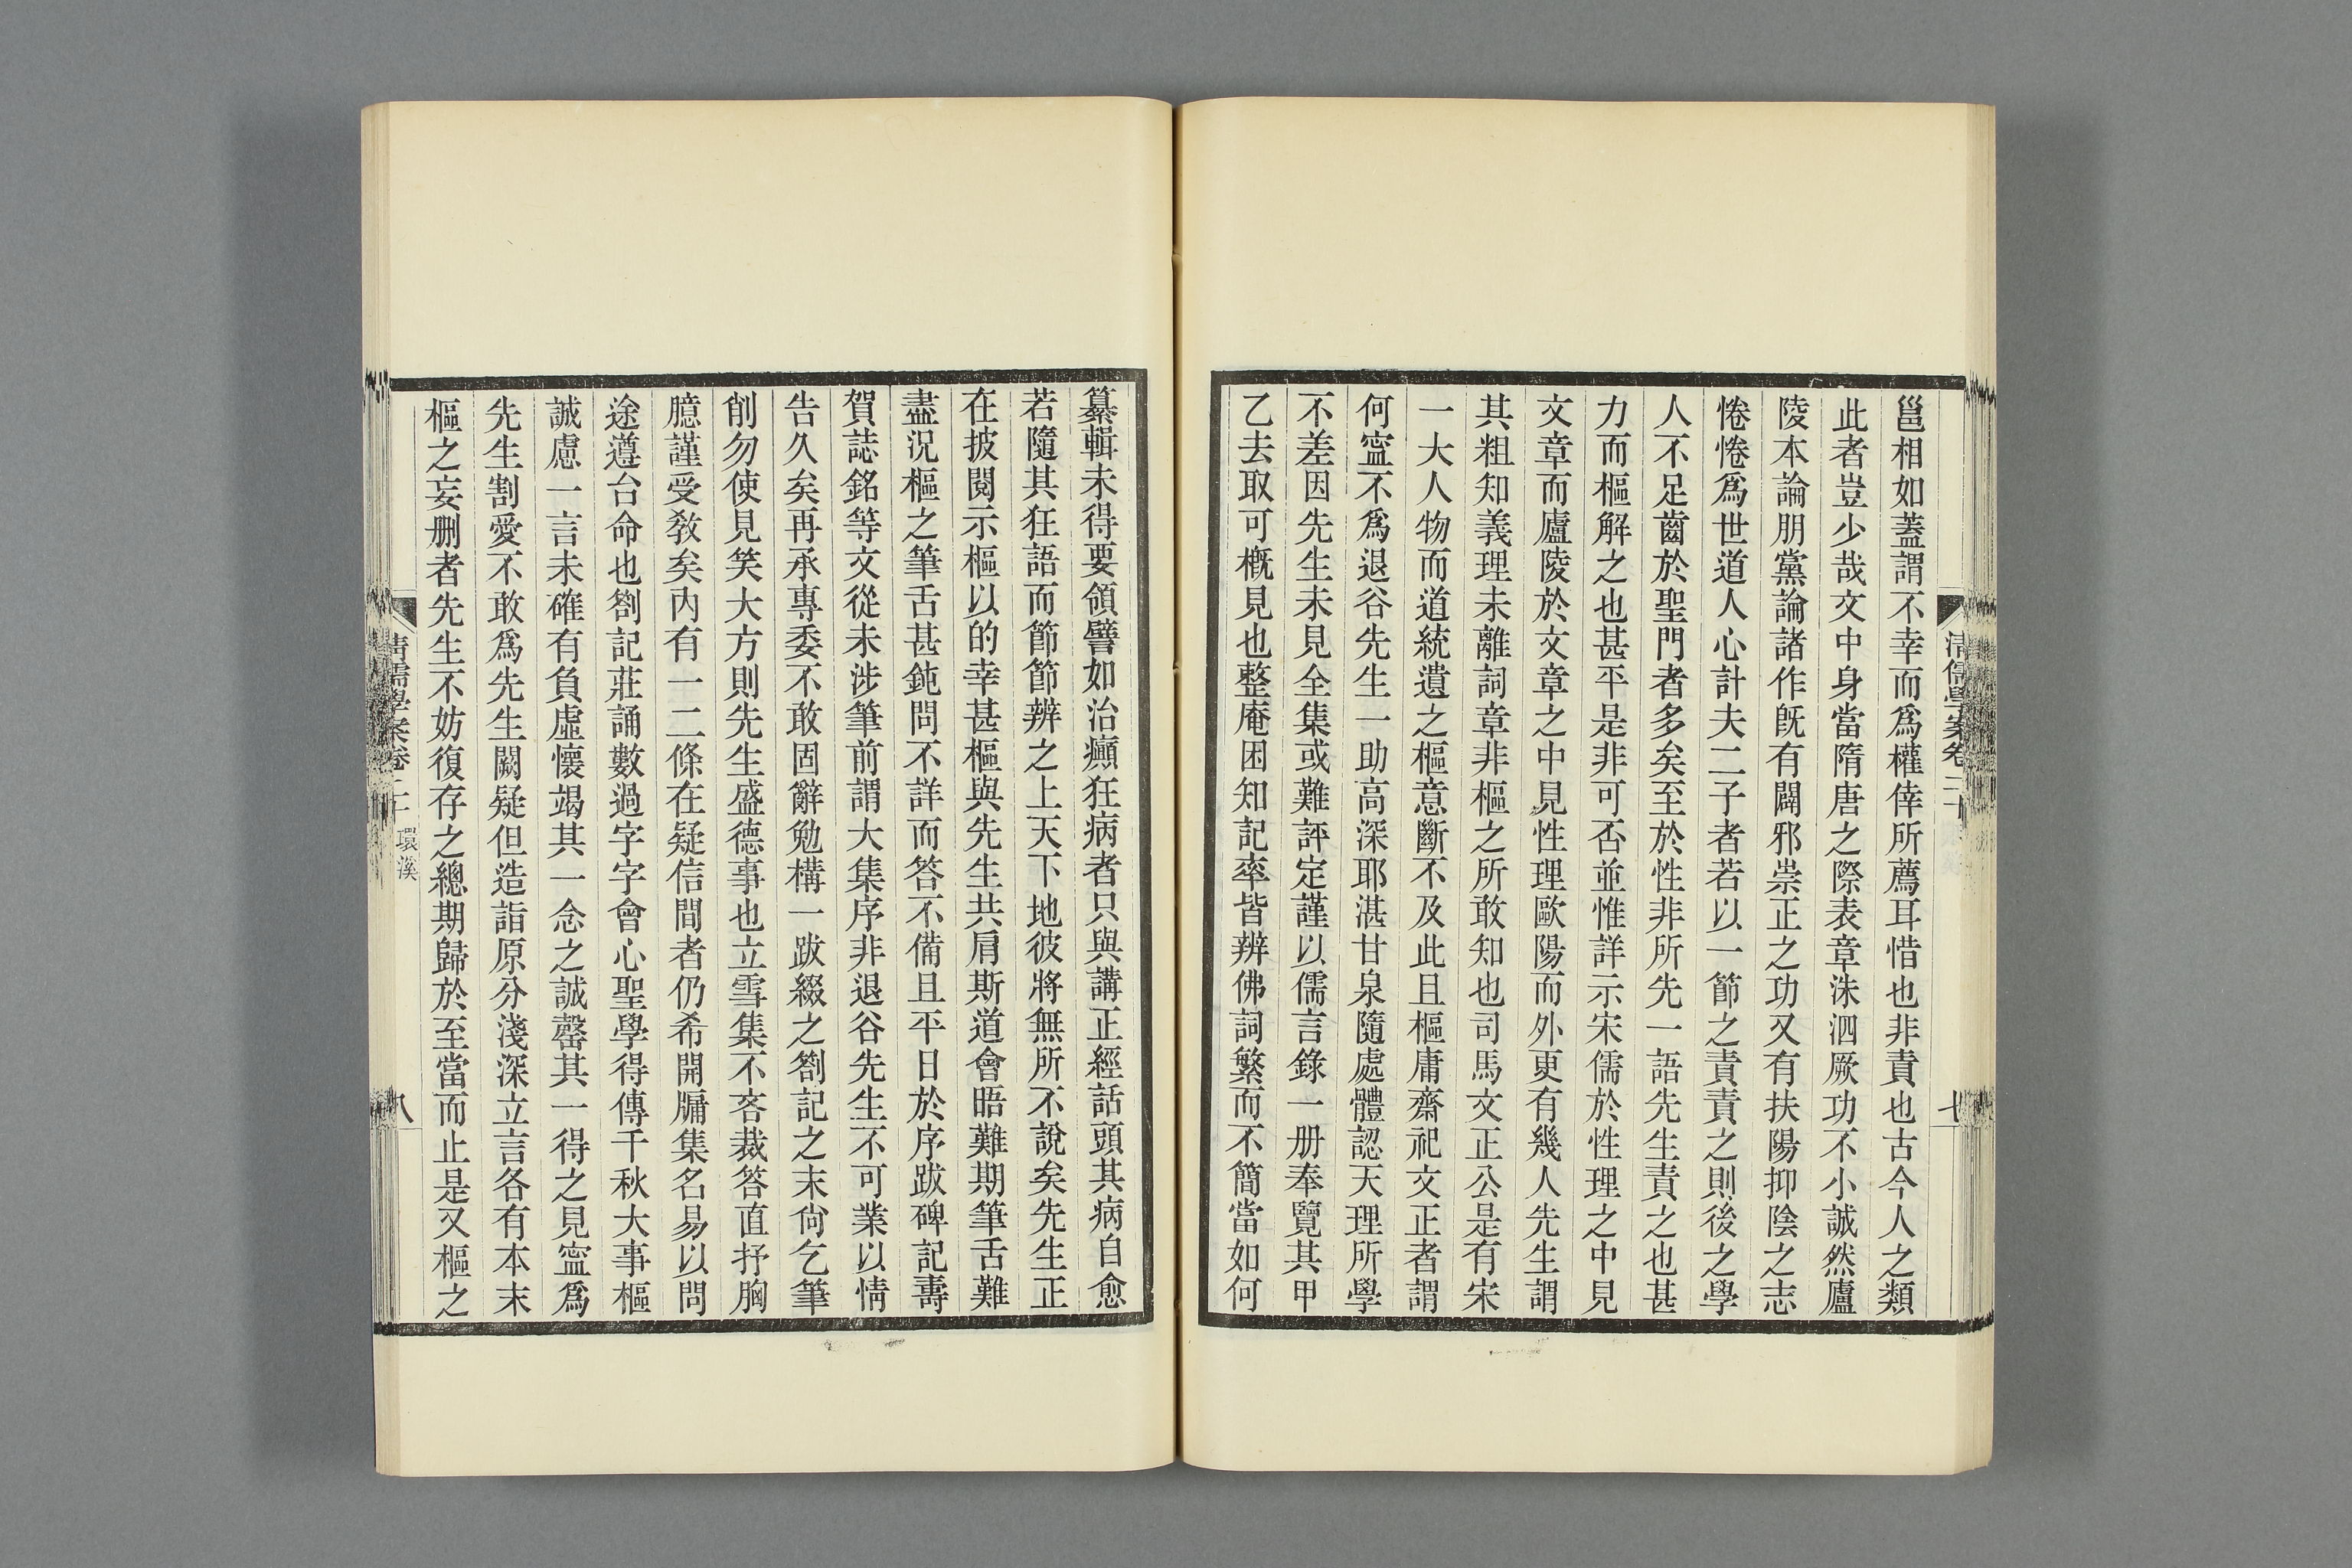 邕相如蓋謂不幸而爲權倖所薦耳惜也非責也古今人之類
此者豈少哉文中身當隋唐之際表章洙泗厥功不小誠然廬
陵本論朋黨論諸作旣有闢邪崇正之功又有扶陽抑陰之志
惓惓爲世道人心計夫二子者若以一節之責責之則後之學
人不足齒於聖門者多矣至於性非所先一語先生責之也甚
力而樞解之也甚平是非可否並惟詳示宋儒於性理之中見
文章而廬陵於文章之中見性理歐陽而外更有幾人先生謂
其粗知義理未離詞章非樞之所敢知也司馬文正公是有宋
一大人物而道統遺之樞意斷不及此且樞庸齋祀文正者謂
何寍不爲退谷先生一助高深耶湛甘泉隨處體認天理所學
不差因先生未見全集或難評定謹以儒言錄一册奉覽其甲
乙去取可槪見也整庵困知記率皆辨佛詞繁而不簡當如何
清儒學案卷二十
七
纂輯未得要領譬如治癲狂病者只與講正經話頭其病自愈
若隨其狂語而節節辨之上天下地彼將無所不說矣先生正
在披閱示樞以的幸甚樞與先生共肩斯道會晤難期筆舌難
盡況樞之筆舌甚鈍問不詳而答不備且平日於序跋碑記壽
賀誌銘等文從未涉筆前謂大集序非退谷先生不可業以情
告久矣再承專委不敢固辭勉構一跋綴之劄記之末尙乞筆
削勿使見笑大方則先生盛德事也立雪集不吝裁答直抒胸
臆謹受敎矣內有一二條在疑信間者仍希開牖集名易以問
途遵台命也劄記莊誦數過字字會心聖學得傳千秋大事樞
誠慮一言未確有負虛懷竭其一念之誠罄其一得之見寍爲
先生割愛不敢爲先生闕疑但造詣原分淺深立言各有本末
樞之妄删者先生不妨復存之總期歸於至當而止是又樞之
清儒學案卷二十
環溪
八